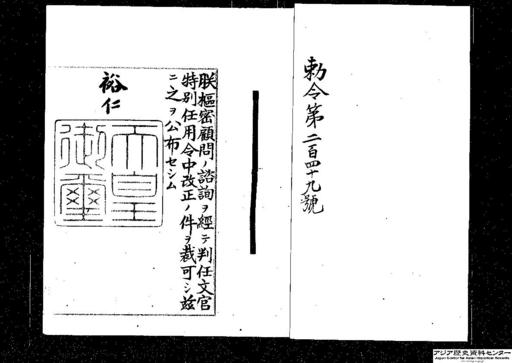 勅令第二百四十九號
朕樞密顧問ノ諮詢ヲ經テ判任文官
特別任用令中改正ノ件ヲ裁可シ茲
ニ之ヲ公布セシム
裕仁
天皇
御璽
アジア歴史資料センター
Japan Center for Asian Historical Records